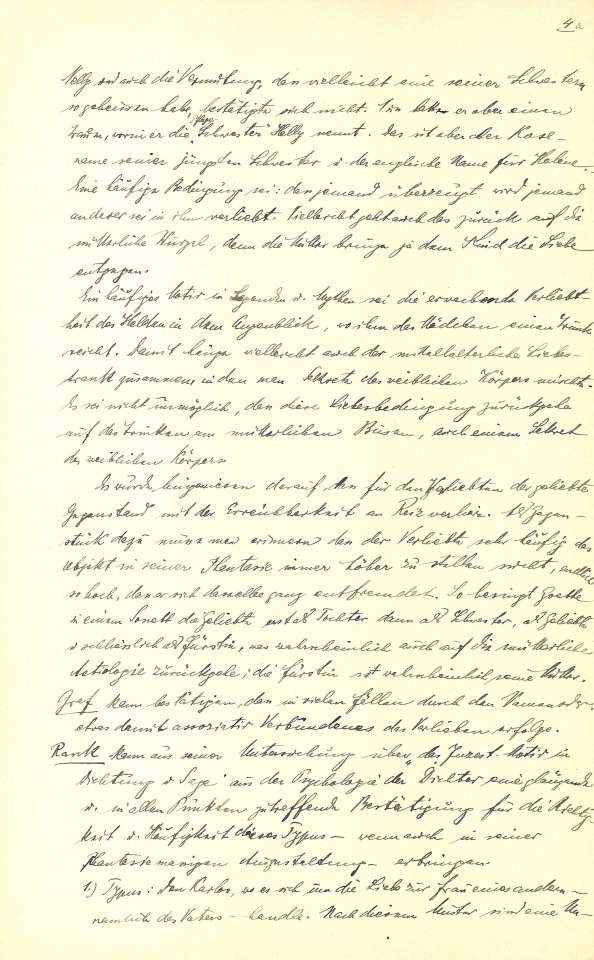 4a
Nelly und auch die Vermutung, dass vielleicht eine seiner Schwestern
so geheissen habe, bestätigte sich nicht. hatte er aber einen
Traum, worin er die Pflege „Schwester" Helly nennt. Das ist aber der Kose-
name seiner jüngsten Schwester u. der englische Name für Helene.
Eine häufige Bedingung sei: dass jemand überzeugt wird jemand
anderer sei in ihn verliebt. Vielleicht geht auch das zurück auf die
mütterliche Wurzel, denn die Mutter bringe ja dem Kind die Liebe
entgegen.
Ein häufiges Motiv in Legenden u. Mythen sei die erwachende Verliebt-
heit des Helden in dem Augenblick, wo ihm das Mädchen einen Trunk
reicht. Damit hänge vielleicht auch der mittelalterliche Liebes-
trank zusammen in den man Sekrete des weiblichen Körpers mischte.
Es sei nicht unmöglich, dass diese Liebesbedingung zurückgehe
auf das Trinken am mütterlichen Busen, auch einem Sekret
des weiblichen Körpers
Es wurde hingewiesen darauf, dass für den Verliebten der geliebte
Gegenstand mit der Erreichbarkeit an Reiz verliere. Als Gegen-
stück dazu muss man erinnern dass der Verliebte sehr häufig das
Objekt in seiner Phantasie immer höher zu stellen sucht, endlich
so hoch, dass er sich dasselbe ganz entfremdet. So besingt Goethe
in einem Sonett die Geliebte erst als Tochter dann als Schwester, als Geliebte
u. schliesslich als Fürstin, was wahrscheinlich auch auf die mütterliche
Aetiologie zurückgehe; die Fürstin ist wahrscheinlich seine Mutter.
Graf kann bestätigen, dass in vielen Fällen durch den Namen oder
etwas damit assoziativ Verbundenes das Verlieben erfolge.
Rank kann aus seiner Untersuchung über „das Inzest-Motiv in
Dichtung u. Sage" aus der Psychologie der Dichter eine glänzende
u. in allen Punkten zutreffende Bestätigung für die Richtig
keit u. Häufigkeit dieses Typus – wenn auch in seiner
phantasiemässigen Ausgestaltung – erbringen.
1.) Typus: Don Karlos, wo es sich um die Liebe zur Frau eines andern –
nämlich des Vaters – handle. Nach diesem Muster sind eine Un-